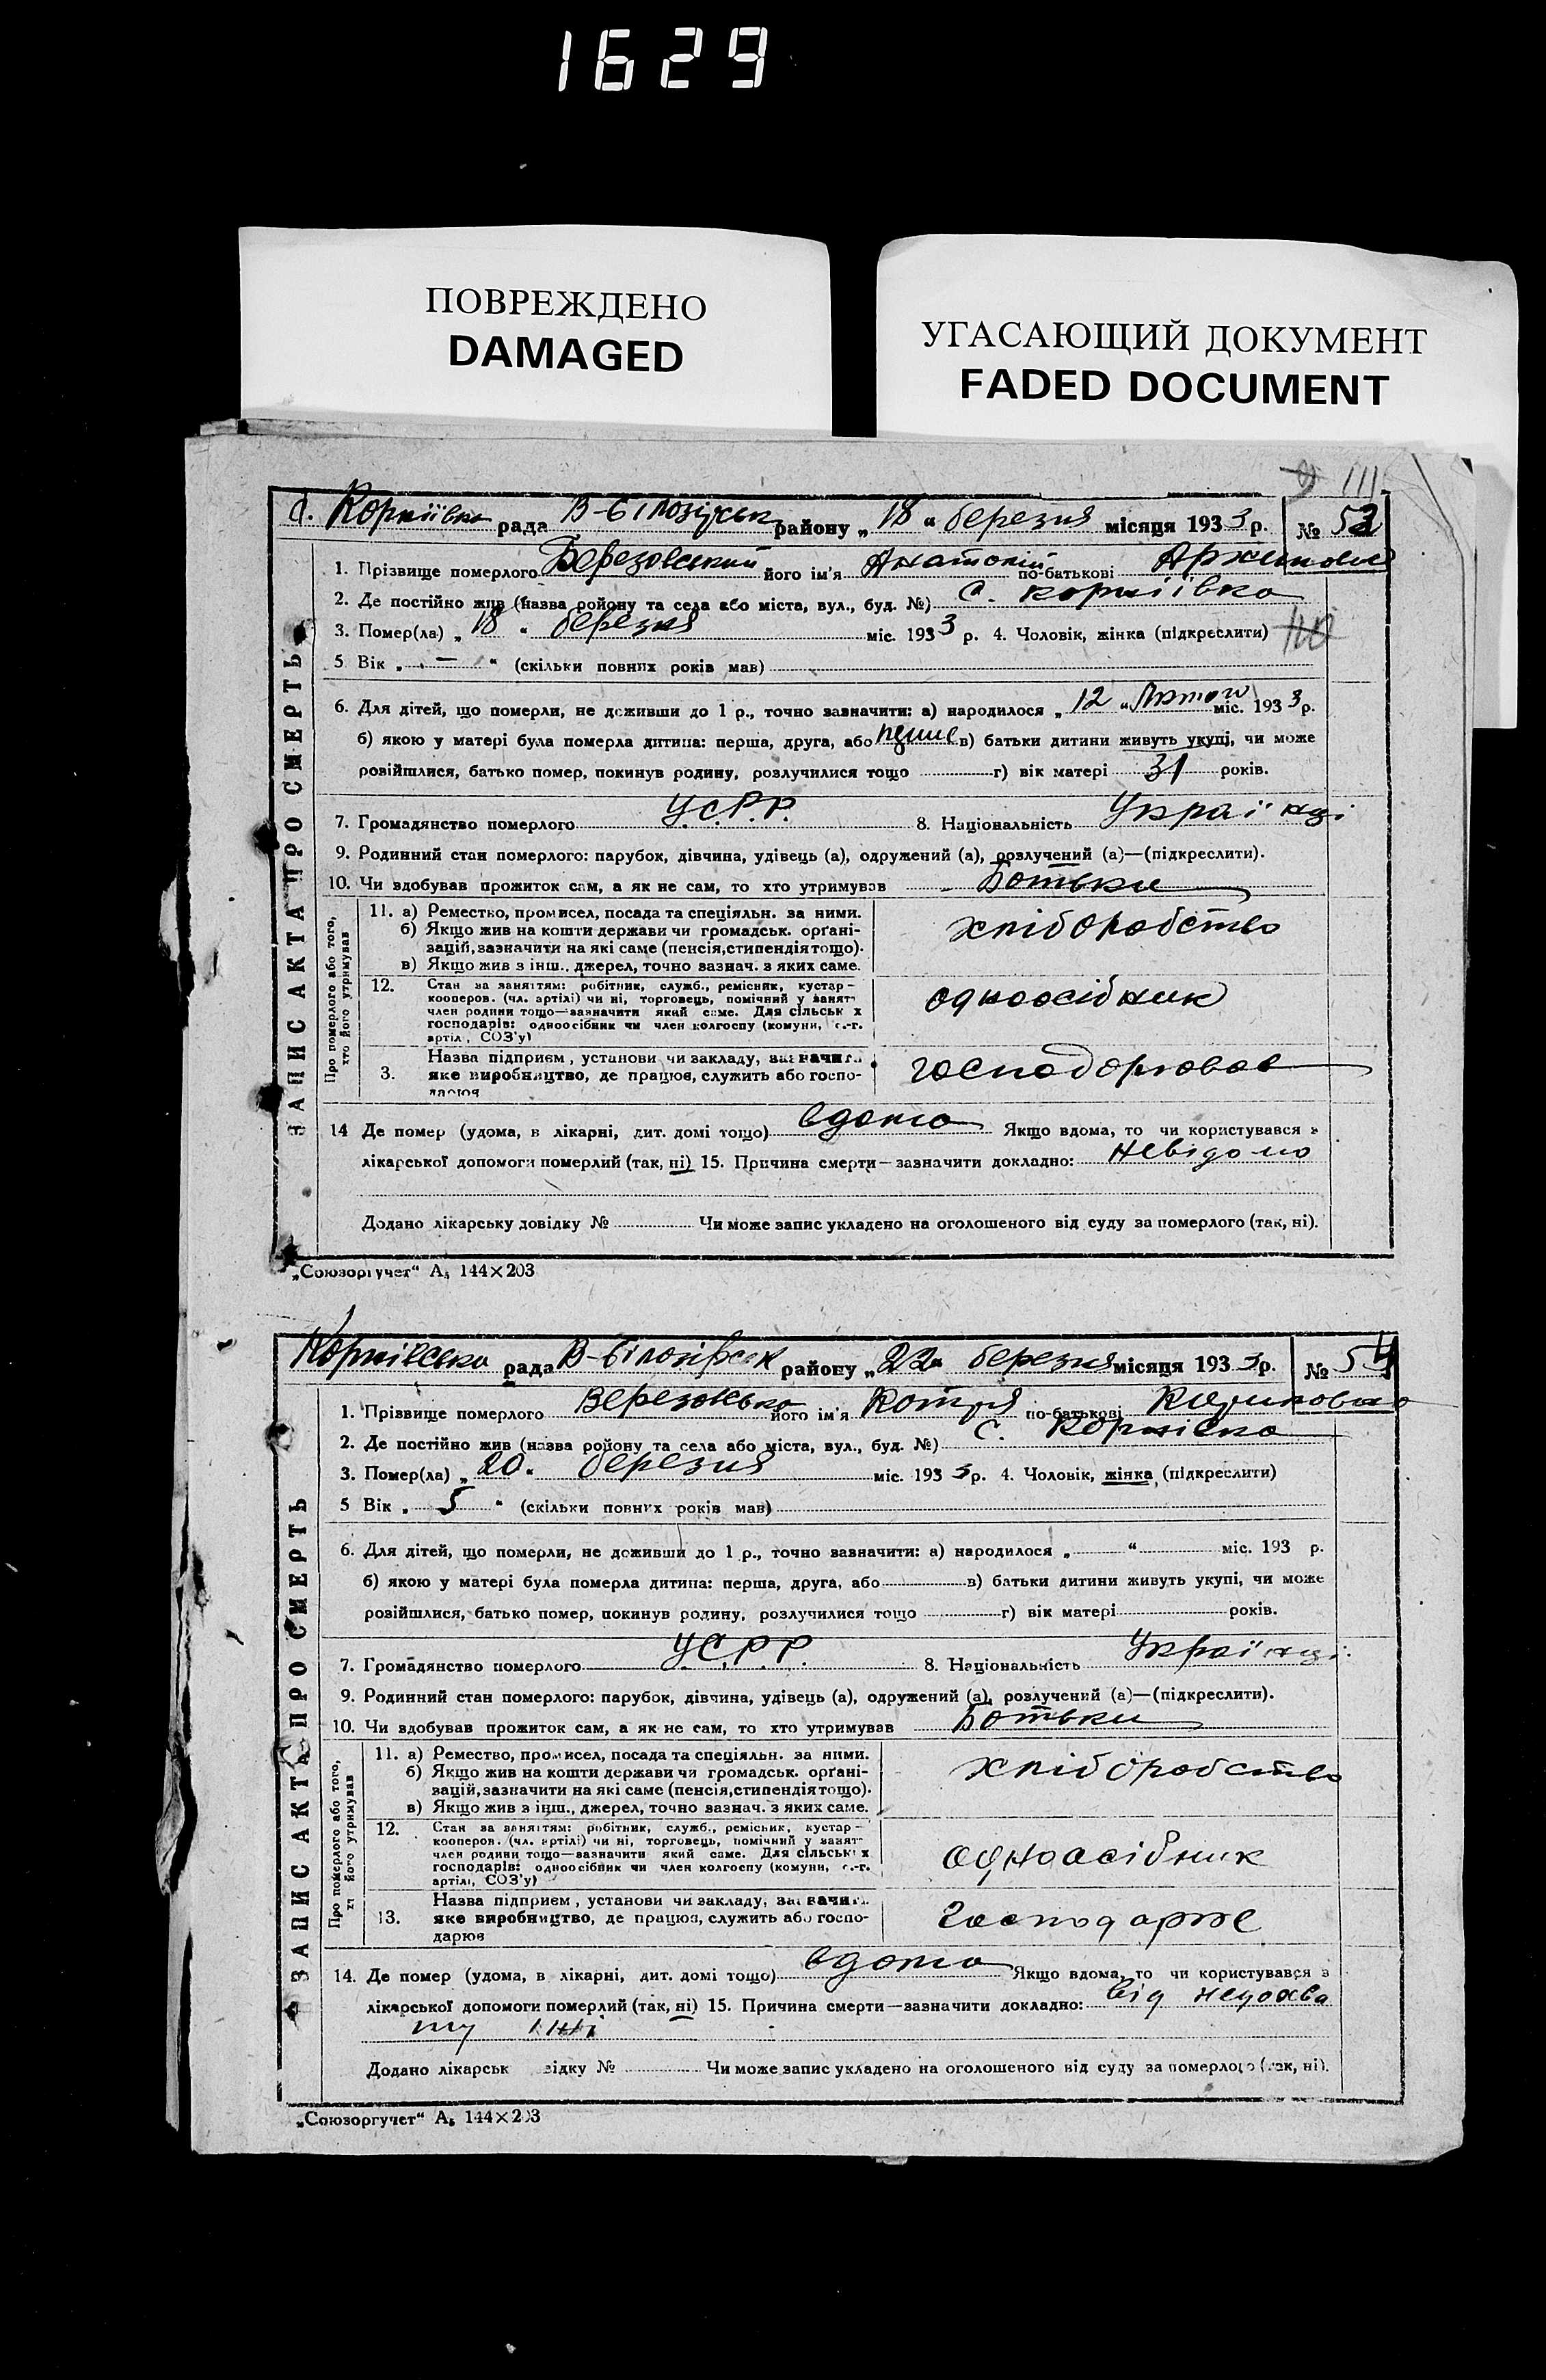 1629
ПОВРЕЖДЕНО
DAMAGED
УГАСАЮЩИЙ ДОКУМЕНТ
FADED DOCUMENT
111
с. Корніївка рада В-Білозірськ району „ 18 “ березня місяця 1933 р. № 53
ЗАПИС АКТА ПРО СМЕРТЬ
1. Прізвище померлого Березовський його ім'я Анатолій по-батькові
2. Де постійно жив (назва ройону та села або міста, вул., буд. №) С. Корніївка
3. Помер(ла) „ 18 “ березня міс. 1933 р. 4. Чоловік, жінка (підкреслити)
5 Вік „ — “ (скільки повних років мав)
6. Для дітей, що померли, не доживши до 1 р., точно зазначити: а) народилося „ 12 “ Лютого міс. 1933 р.
б) якою у матері була померла дитина: перша, друга, або в) батьки дитини живуть укупі, чи може
розійшлися, батько помер, покинув родину, розлучилися тощо г) вік матері 31 років.
7. Громадянство померлого У.С.Р.Р. 8. Національність Українці
9. Родинний стан померлого: парубок, дівчина, удівець (а), одружений (а), розлучений (а)—(підкреслити).
10. Чи здобував прожиток сам, а як не сам, то хто утримував Батьки
Про померлого або того,
хто його утримував
11. а) Ремество, промисел, посада та спеціяльн. за ними.
б) Якщо жив на кошти держави чи громадськ. органі-
зацій, зазначити на які саме (пенсія, стипендія тощо).
в) Якщо жив з інш., джерел, точно зазнач. з яких саме.
хліборобство
12. Стан за заняттям: робітник, служб., ремісник, кустар-
кооперов. (чл. артілі) чи ні, торговець, помічний у занят-
член родини тощо—зазначити який саме. Для сільськ х
господарів: одноосібник чи член колгоспу (комуни, с.-г.
артіл, СОЗ'у)
одноосібник
3. Назва підприєм, установи чи закладу, зазначит..
яке виробництво, де працює, служить або госпо-
дарює
господорював
14 Де помер (удома, в лікарні, дит. домі тощо) вдома Якщо вдома, то чи користувався з
лікарської допомоги померлий (так, ні) 15. Причина смерти—зазначити докладно: Невідомо
Додано лікарську довідку № Чи може запис укладено на оголошеного від суду за померлого (так, ні).
„Союзоргучет“ А, 144×203
Корніївсько рада В-Білозірськ району „ 22 “ березня місяця 1933 р. № 54
ЗАПИС АКТА ПРО СМЕРТЬ
1. Прізвище померлого Березовсько його ім'я Котря по-батькові
2. Де постійно жив (назва ройону та села або міста, вул., буд. №) С. Корніївка
3. Помер(ла) „ 20 “ березня міс. 1933 р. 4. Чоловік, жінка (підкреслити)
5 Вік „ 5 “ (скільки повних років мав)
6. Для дітей, що померли, не доживши до 1 р., точно зазначити: а) народилося „ “ міс. 193 р.
б) якою у матері була померла дитина: перша, друга, або в) батьки дитини живуть укупі, чи може
розійшлися, батько помер, покинув родину, розлучилися тощо г) вік матері років.
7. Громадянство померлого У.С.Р.Р. 8. Національність Українці
9. Родинний стан померлого: парубок, дівчина, удівець (а), одружений (а), розлучений (а)—(підкреслити).
10. Чи здобував прожиток сам, а як не сам, то хто утримував Батьки
Про померлого або того,
його утримував
11. а) Ремество, промисел, посада та спеціяльн. за ними.
б) Якщо жив на кошти держави чи громадськ. органі-
зацій, зазначити на які саме (пенсія, стипендія тощо).
в) Якщо жив з інш., джерел, точно зазнач. з яких саме.
хліборобство
12. Стан за заняттям: робітник, служб., ремісник, кустар-
кооперов. (чл. артілі) чи ні, торговець, помічний у занят-
член родини тощо—зазначити який саме. Для сільськ х
господарів: одноосібник чи член колгоспу (комуни, с.-г.
артілі, СОЗ'у)
одноасібник
13. Назва підприєм, установи чи закладу, зазначит..
яке виробництво, де працює, служить або госпо-
дарює
господарює
14. Де помер (удома, в лікарні, дит. домі тощо) вдома Якщо вдома, то чи користувався з
лікарської допомоги померлий (так, ні) 15. Причина смерти—зазначити докладно: від недохва
ту їжі
Додано лікарськ відку № Чи може запис укладено на оголошеного від суду за померлого (так, ні).
„Союзоргучет“ А, 144×203